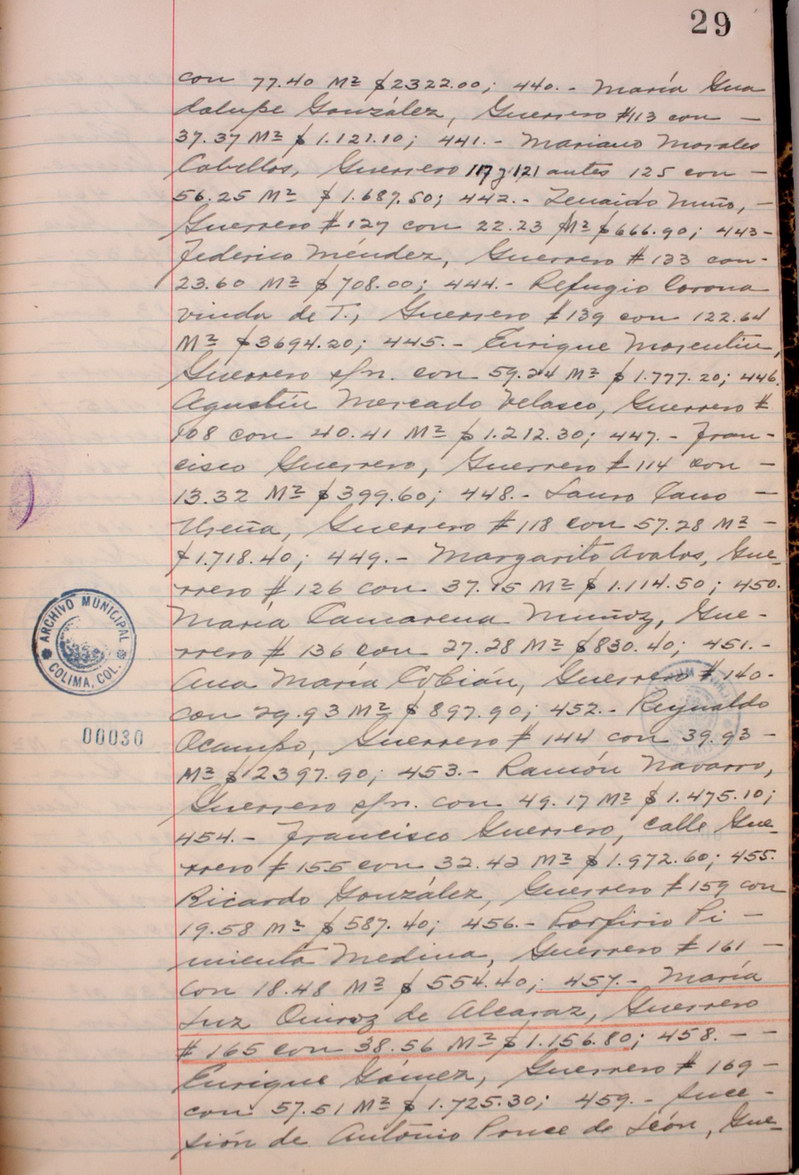 29
con 77.40 M² $2322.00; 440.- María Gua
dalupe González, Guerrero #113 con -
37.37 M² $1.121.10; 441.- Mariano Morales
Cabellos, Guerrero 117 y 121 antes 125 con -
56.25 M² $1.687.50; 442.- Zenaido Nuño, -
Guerrero # 127 con 22.23 M² $666.90; 443-
Federico Méndez, Guerrero # 133 con-
23.60 M² $708.00; 444.- Refugio Corona
viuda de T., Guerrero # 139 con 122.64
M² $3694.20; 445.- Enrique
Guerrero s/n. con 59.24 M² $1.777.20; 446.
Agustín Mercado Velasco, Guerrero #
108 con 40.41 M² $1.212.30; 447.- Fran-
cisco Guerrero, Guerrero # 114 con -
13.32 M² $399.60; 448.- Lauro Cano -
Ureña, Guerrero # 118 con 57.28 M² -
$1.718.40; 449.- Margarito Avalos, Gue-
rrero # 126 con 37.15 M² $1.114.50; 450.
María Camarena Muñoz, Gue-
rrero # 136 con 27.28 M² $830.40; 451.-
Ana María Cobián, Guerrero # 140-
con 29.93 M² $897.90; 452.- Reynaldo
Ocampo, Guerrero # 144 con 39.93 -
M² $2397.90; 453.- Ramón Navarro,
Guerrero s/n. con 49.17 M² $1.475.10;
454.- Francisco Guerrero, calle Gue-
rrero # 155 con 32.42 M² $1.972.60; 455.
Ricardo González, Guerrero # 159 con
19.58 M² $587.40; 456.- Porfirio Pi -
mienta Medina, Guerrero # 161 -
con 18.48 M² $554.40; 457.- María
Luz Quiroz de Alcaraz, Guerrero
# 165 con 38.56 M² $1.156.80; 458.- -
Enrique Gómez, Guerrero # 169 -
con 57.51 M² $1.725.30; 459.- Suce -
sión de Antonio Ponce de León, Gue-
ARCHIVO MUNICIPAL
COLIMA, COL.
00030